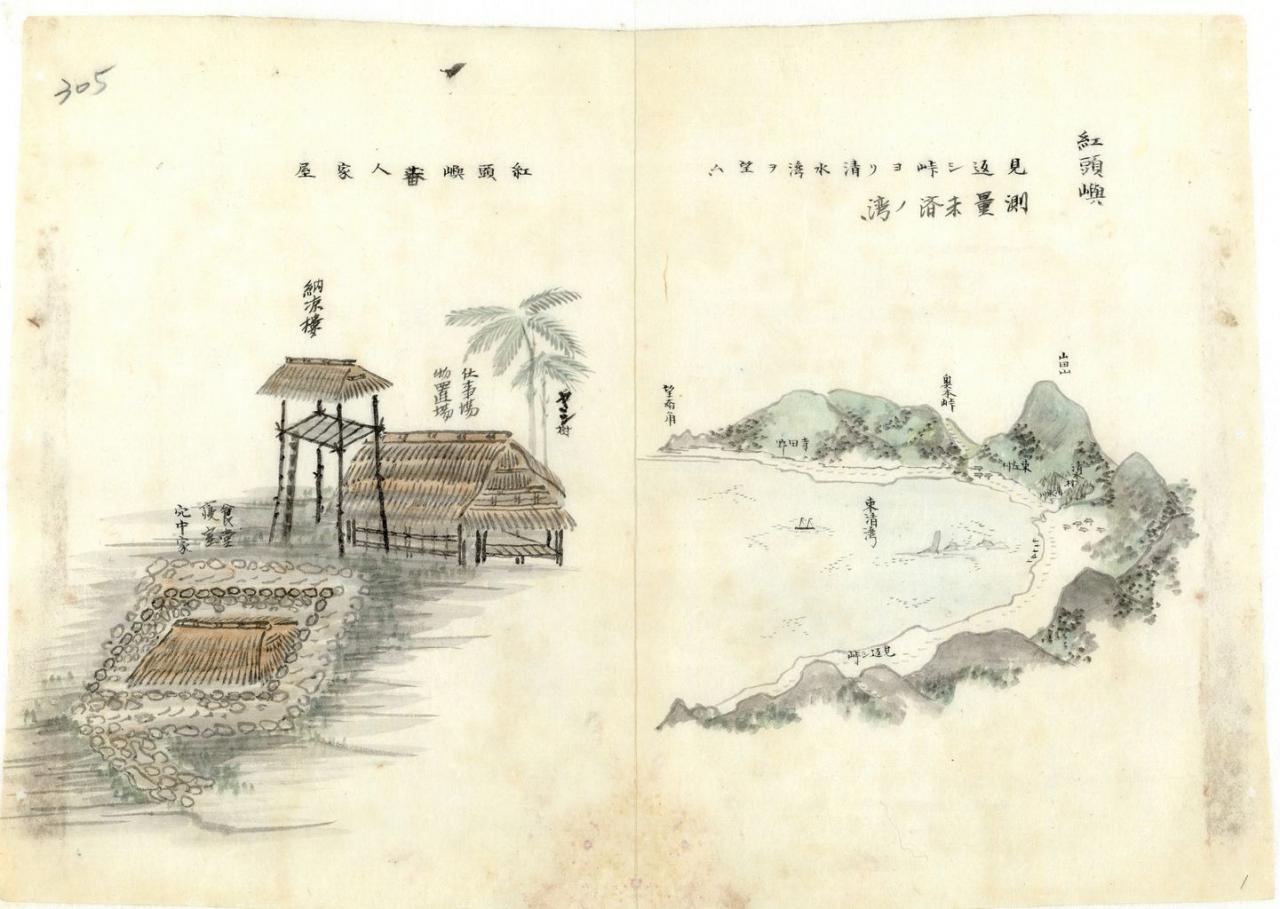 紅頭嶼
見返シ峠ヨリ清水湾ヲ望ム
測量未済ノ湾
山田山
奥本峠
望南角
寺田野
東清湾
見返シ峠
紅頭嶼蕃人家屋
納凉楼
仕事場
物置場
ヤシ樹
食堂
寝室
穴中家
305
1